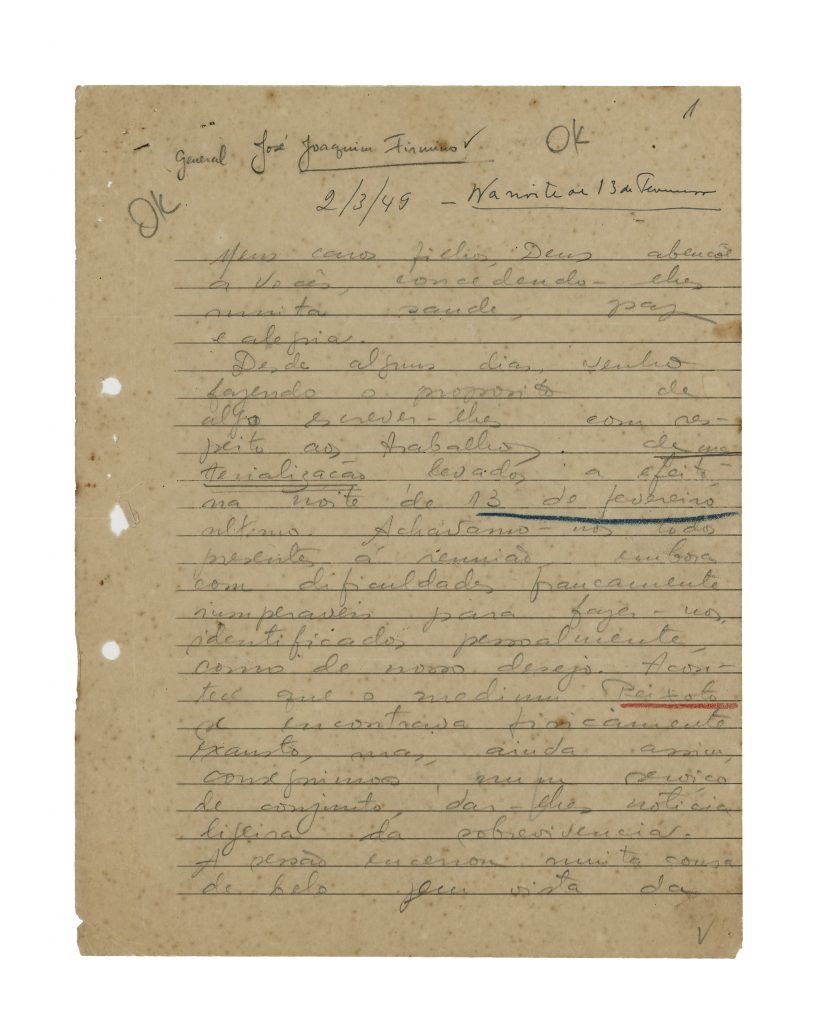 1
General José Joaquim Firmino √
OK
OK
2/3/49 – Na noite de 13 de Fevereiro
Meus caros filhos, Deus abençõe
a vocês, concedendo-lhes
muita saude, paz
e alegria.
Desde alguns dias, venho
fazendo o proposito de
algo escrever-lhes com res-
peito aos trabalhos de ma
terialização levados a efeito
na noite de 13 de fevereiro
ultimo. Achávamo-nos todos
presentes á reunião, embora
com dificuldades francamente
insuperaveis para fazer-nos,
identificados pessoalmente,
como de nosso desejo. Acon-
tece que o medium Peixoto
se encontrava fisicamente
exausto, mas, ainda assim,
conseguimos, num serviço
de conjunto, dar-lhes noticia
ligeira da sobrevivencia.
A sessão encerrou muita cousa
de belo em vista da
√